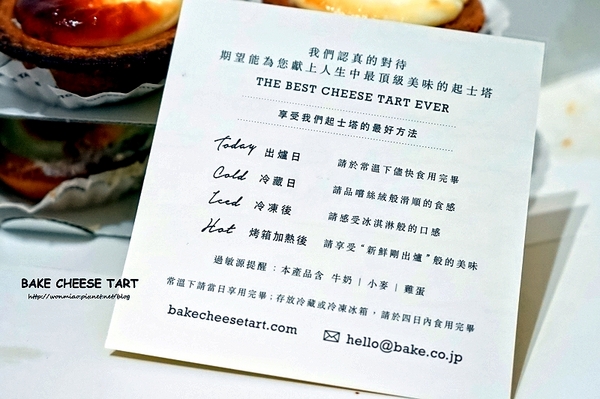 我們認真的對待
期望能為您獻上人生中最頂級美味的起士塔
THE BEST CHEESE TART EVER
享受我們起士塔的最好方法
Today 出爐日 請於常溫下儘快食用完畢
Cold 冷藏日 請品嚐絲絨般滑順的食感
Iced 冷凍後 請感受冰淇淋般的口感
Hot 烤箱加熱後 請享受“新鮮剛出爐”般的美味
過敏源提醒：本產品含 牛奶 | 小麥 | 雞蛋
常溫下請當日享用完畢；存放冷藏或冷凍冰箱，請於四日內食用完畢
bakecheesetart.com
hello@bake.co.jp
BAKE CHEESE TART
http://wonmiao.pixnet.net/blog